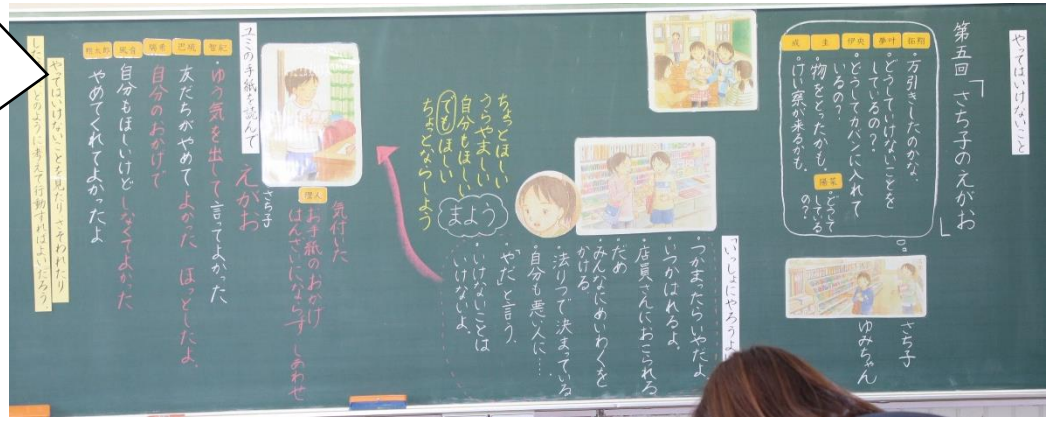 やってはいけないこと
第五回 「さち子のえがお」
・万引きしたのかな。
・どうしていけないことを
しているの?
・どうしてカバンに入れて
いるの?
・物をとったかも。
・けい察が来るかも。
・どうして
しているの?
夢叶
伊央
陽菜
さち子
ゆみちゃん
「いっしょにやろうよ
・つかまったらいやだよ。
・いつかばれるよ。
・店員さんにおこられる
・だめ
・みんなにめいわくを
かける。
・法りつで決まっている
・自分も悪い人に…。
・「やだ」と言う。
・いけないことは
いけないよ。
まよう
ちょっとほしい
うらやましい
自分もほしい
でもほしい
ちょっとならしよう
気付いた
お手紙のおかげ
はんざいにならず しあわせ
さち子
えがお
ユミの手紙を読んで
聖紀
・ゆう気を出して言ってよかった
友だちがやめてよかった ほっとしたよ。
自分のおかげで
自分もほしいけど しなくてよかった
やめてくれてよかったよ
颯音
やってはいけないことを見たり さそわれたり
したとき どのように考えて行動すればよいだろう。